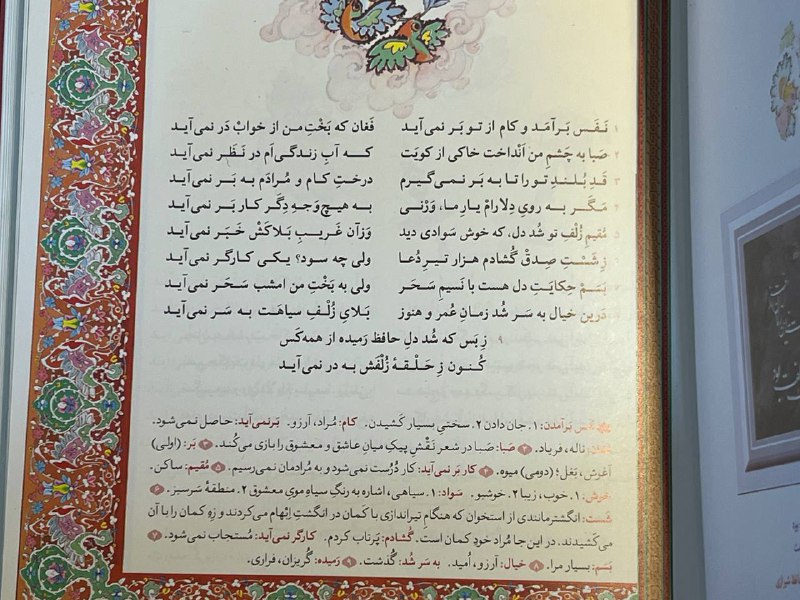 ۱ نَفَس بَرآمَد و کام از تو بَر نمی‌آید فَغان که بَخْتِ من از خوابْ دَر نمی‌آید
۲ صَبا به چَشمِ من اَنْداخت خاکی از کویَت که آبِ زندگی‌اَم در نَظَر نمی‌آید
۳ قَدِ بُلندِ تو را تا به بَر نمی‌گیرم درختِ کام و مُرادَم به بَر نمی‌آید
۴ مَگَر به رویِ دِلارامْ یارِ ما، وَرْنی به هیچ وَجهِ دِگَر کار بَر نمی‌آید
۵ مُقیمِ زُلْفِ تو شُد دل، که خوش سَوادی دید وَزآن غَریبِ بَلاکَشْ خَبَر نمی‌آید
۶ زِ شَسْتِ صِدقْ گُشادم هزار تیرِ دُعا ولی چه سود؟ یکی کارگر نمی‌آید
۷ بَسَمْ حِکایَتِ دل هست با نَسیمِ سَحَر ولی به بَخْتِ من امشب سَحَر نمی‌آید
۸ دَرین خیال به سَر شُد زمانِ عُمر و هنوز بَلایِ زُلْفِ سیاهَت به سَر نمی‌آید
۹ زِ بَس که شُد دلِ حافظ رَمیده از همه‌کَس
کُنون زِ حَلْقهٔ زُلْفَش به در نمی‌آید
نَفَس بَرآمدن: ۱. جان دادن ۲. سختیِ بسیار کَشیدن. کام: مُراد، آرزو. بَرنمی‌آید: حاصل نمی‌شود.
ناله، فریاد. ۲ صَبا: صَبا در شعر نَقْشِ پیکِ میان عاشق و معشوق را بازی می‌کُند. ۳ بَر: (اولی)
آغوش، بَغَل؛ (دومی) میوه. ۴ کار بَر نمی‌آید: کار دُرُست نمی‌شود و به مُرادمان نمی‌رسیم. ۵ مُقیم: ساکن.
خوش: ۱. خوب، زیبا ۲. خوشبو. سَواد: ۱. سیاهی، اشاره به رنگِ سیاهِ مویِ معشوق ۲. منطقهٔ سَرسبز. ۶
شَست: انگشترمانندی از استخوان که هنگامِ تیراندازی با کمان در انگشتِ اِبْهام می‌کردند و زِهِ کمان را با آن
می‌کَشیدند. در این جا مُراد خودِ کمان است. گُشادم: پَرتاب کردم. کارگر نمی‌آید: مُستجاب نمی‌شود. ۷
بَسَم: بسیار مرا. ۸ خیال: آرزو، اُمید. به سَر شُد: گُذشت. ۹ رَمیده: گُریزان، فراری.